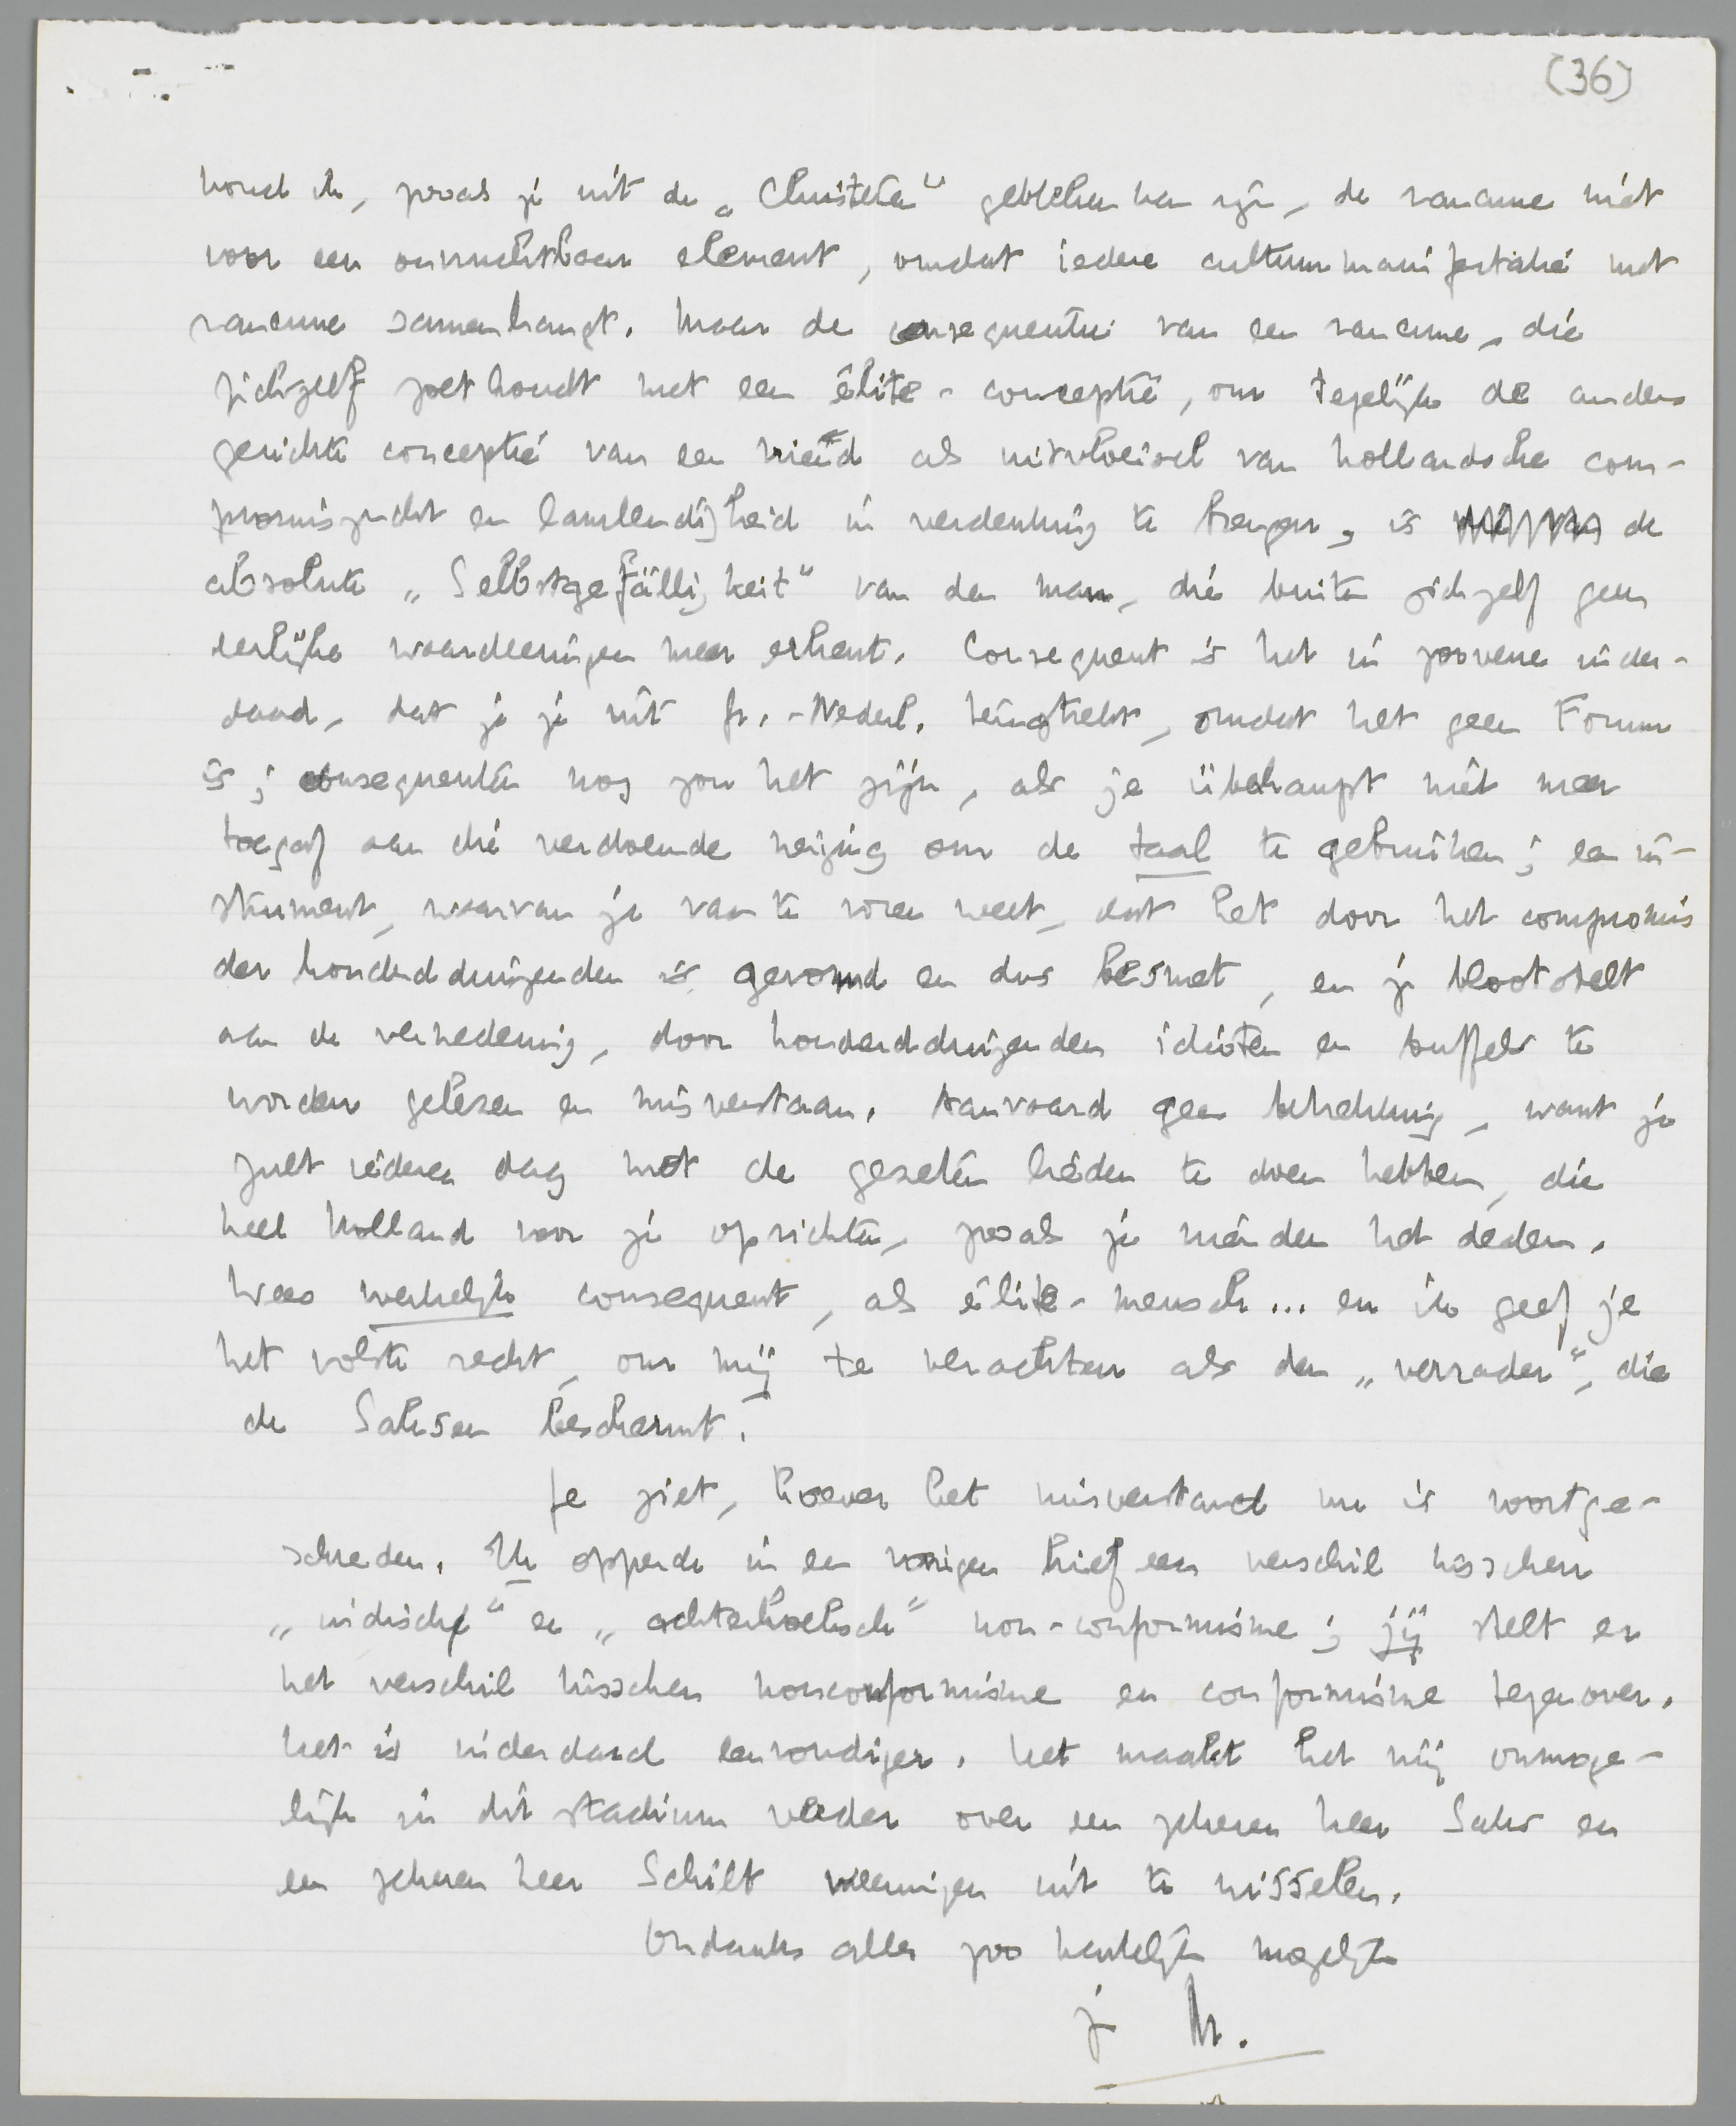 (36)
houd ik, zooals je uit de „Christen" gebleken kan zijn, de rancune niet
voor een onvruchtbaar element, omdat iedere cultuurmanifestatie met
rancune samenhangt. Maar de consequentie van een rancune, die
zichzelf zoet houdt met een élite-conceptie, om tegelijk de anders
gerichte conceptie van een vriend als uitvloeisel van hollandsche com-
promiszucht en lamlendigheid in verdenking te brengen, is de
absolute „Selbstgefälligkeit" van den man, die buiten zichzelf geen
eerlijke waardeeringen meer erkent. Consequent is het in zooverre inder-
daad, dat je je uit Gr.-Nederl. terugtrekt, omdat het geen Forum
is; consequenter nog zou het zijn, als je überhaupt niet meer
toegaf aan die verdoemde neiging om de taal te gebruiken; een in-
strument, waarvan je van te voren weet, dat het door het compromis
der honderdduizenden is gevormd en dus besmet, en je blootstelt
aan de vernedering, door honderdduizenden idioten en buffels te
worden gelezen en misverstaan. Aanvaard geen betrekking, want je
zult iederen dag met de gezeten lieden te doen hebben, die
heel Holland voor je oprichten, zooals je vrienden het deden.
Wees werkelijk consequent, als élite-mensch... en ik geef je
het volste recht, om mij te verachten als den „verrader", die
de Saksen beschermt!
Je ziet, hoever het misverstand nu is voortge-
schreden. Ik opperde in een vorigen brief een verschil tusschen
„indisch" en „achterhoeksch" non-conformisme; jij stelt er
het verschil tusschen nonconformisme en conformisme tegenover.
Het is inderdaad eenvoudiger. Het maakt het mij onmoge-
lijk in dit stadium verder over een zekeren heer Saks en
een zekeren heer Schilt meeningen uit te wisselen.
Ondanks alles zoo hartelijk mogelijk
je M.